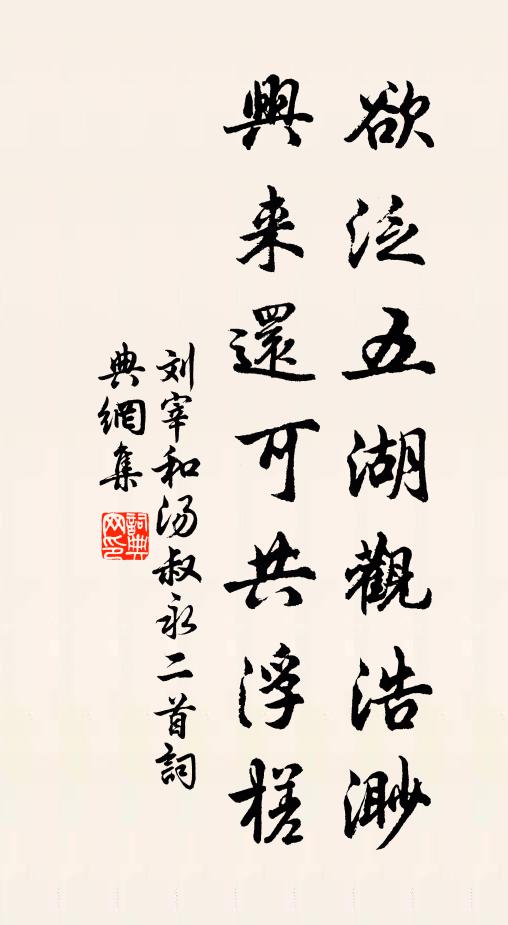 欲泛五湖觀浩渺
興来還可共浮槎
刘宰和汤叔永二首詞
典網集
詞典網印